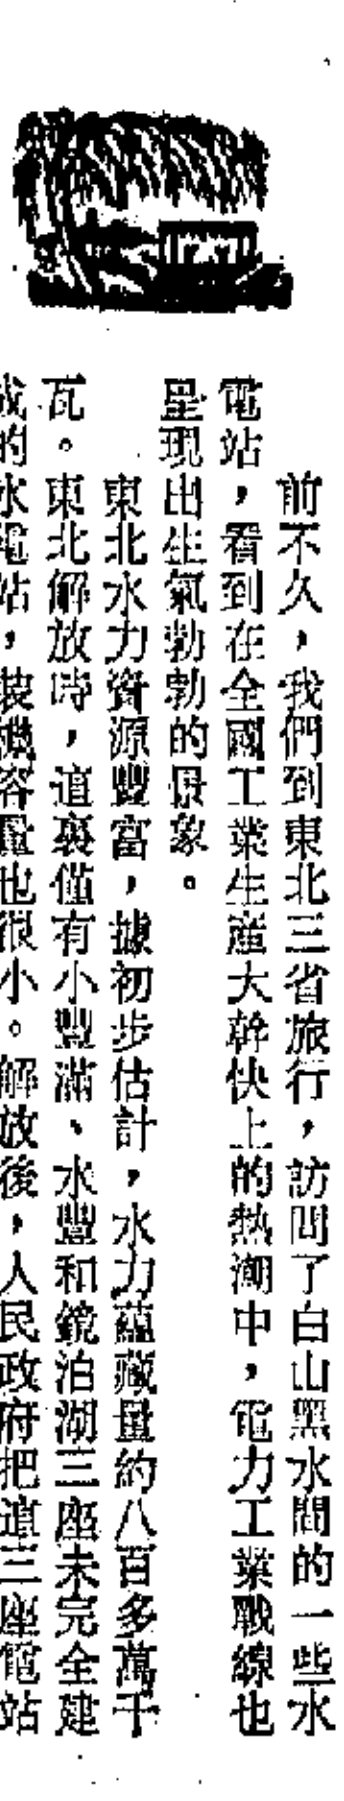 前不久，我們到東北三省旅行，訪問了白山黑水間的一些水
電站，看到在全國工業生產大幹快上的熱潮中，電力工業戰線也
呈現出生氣勃勃的景象。
東北水力資源豐富，據初步估計，水力蘊藏量約八百多萬千
瓦。東北解放時，這裏僅有小豐滿、水豐和鏡泊湖三座未完全建
成的水電站，裝機容量也很小。解放後，人民政府把這三座電站